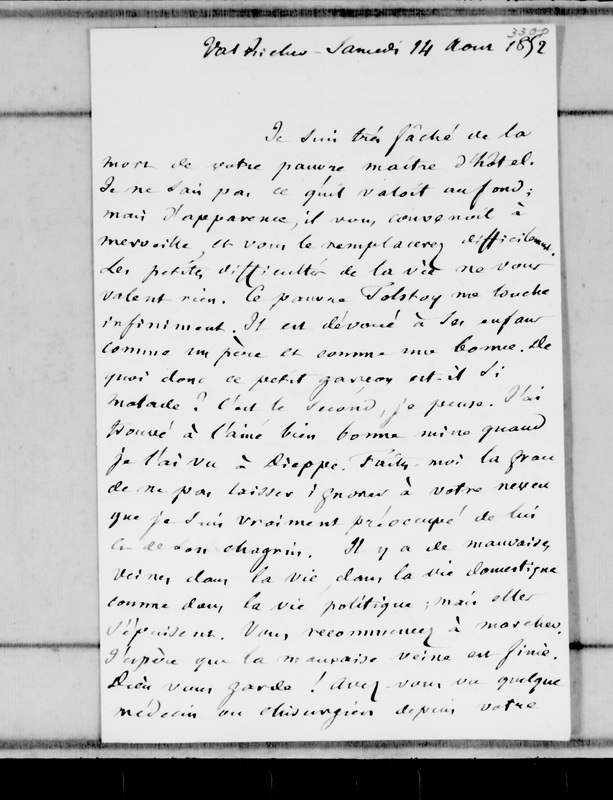 3300
Val Richer - Samedi 14 Aout 1852
Je suis très fâché de la
mort de votre pauvre maitre d'hôtel.
Je ne sais pas ce qu'il valoit au fond;
mais d'apparence, il vous convenoit à
merveille, et vous le remplacerez difficilement.
Les petites difficultés de la vie ne vous
valent rien. Ce pauvre Tolstoy me touche
infiniment. Il est dévoué à ses enfans
comme un père et comme une bonne. De
quoi donc ce petit garçon est-il si
malade ? C'est le second, je pense. J'ai
trouvé à l'ainé bien bonne mine quand
je l'ai vu à Dieppe. Faites-moi la grace
de ne pas laisser ignorer à votre neveu
que je suis vraiment préoccupé de lui
et de son chagrin. Il y a de mauvaises
veines dans la vie, dans la vie domestique
comme dans la vie politique; mais elles
s'épuisent. Vous recommencez à marcher.
J'espère que la mauvaise veine est finie.
Dieu vous garde ! Avez-vous vu quelque
médecin ou chirurgien depuis votre